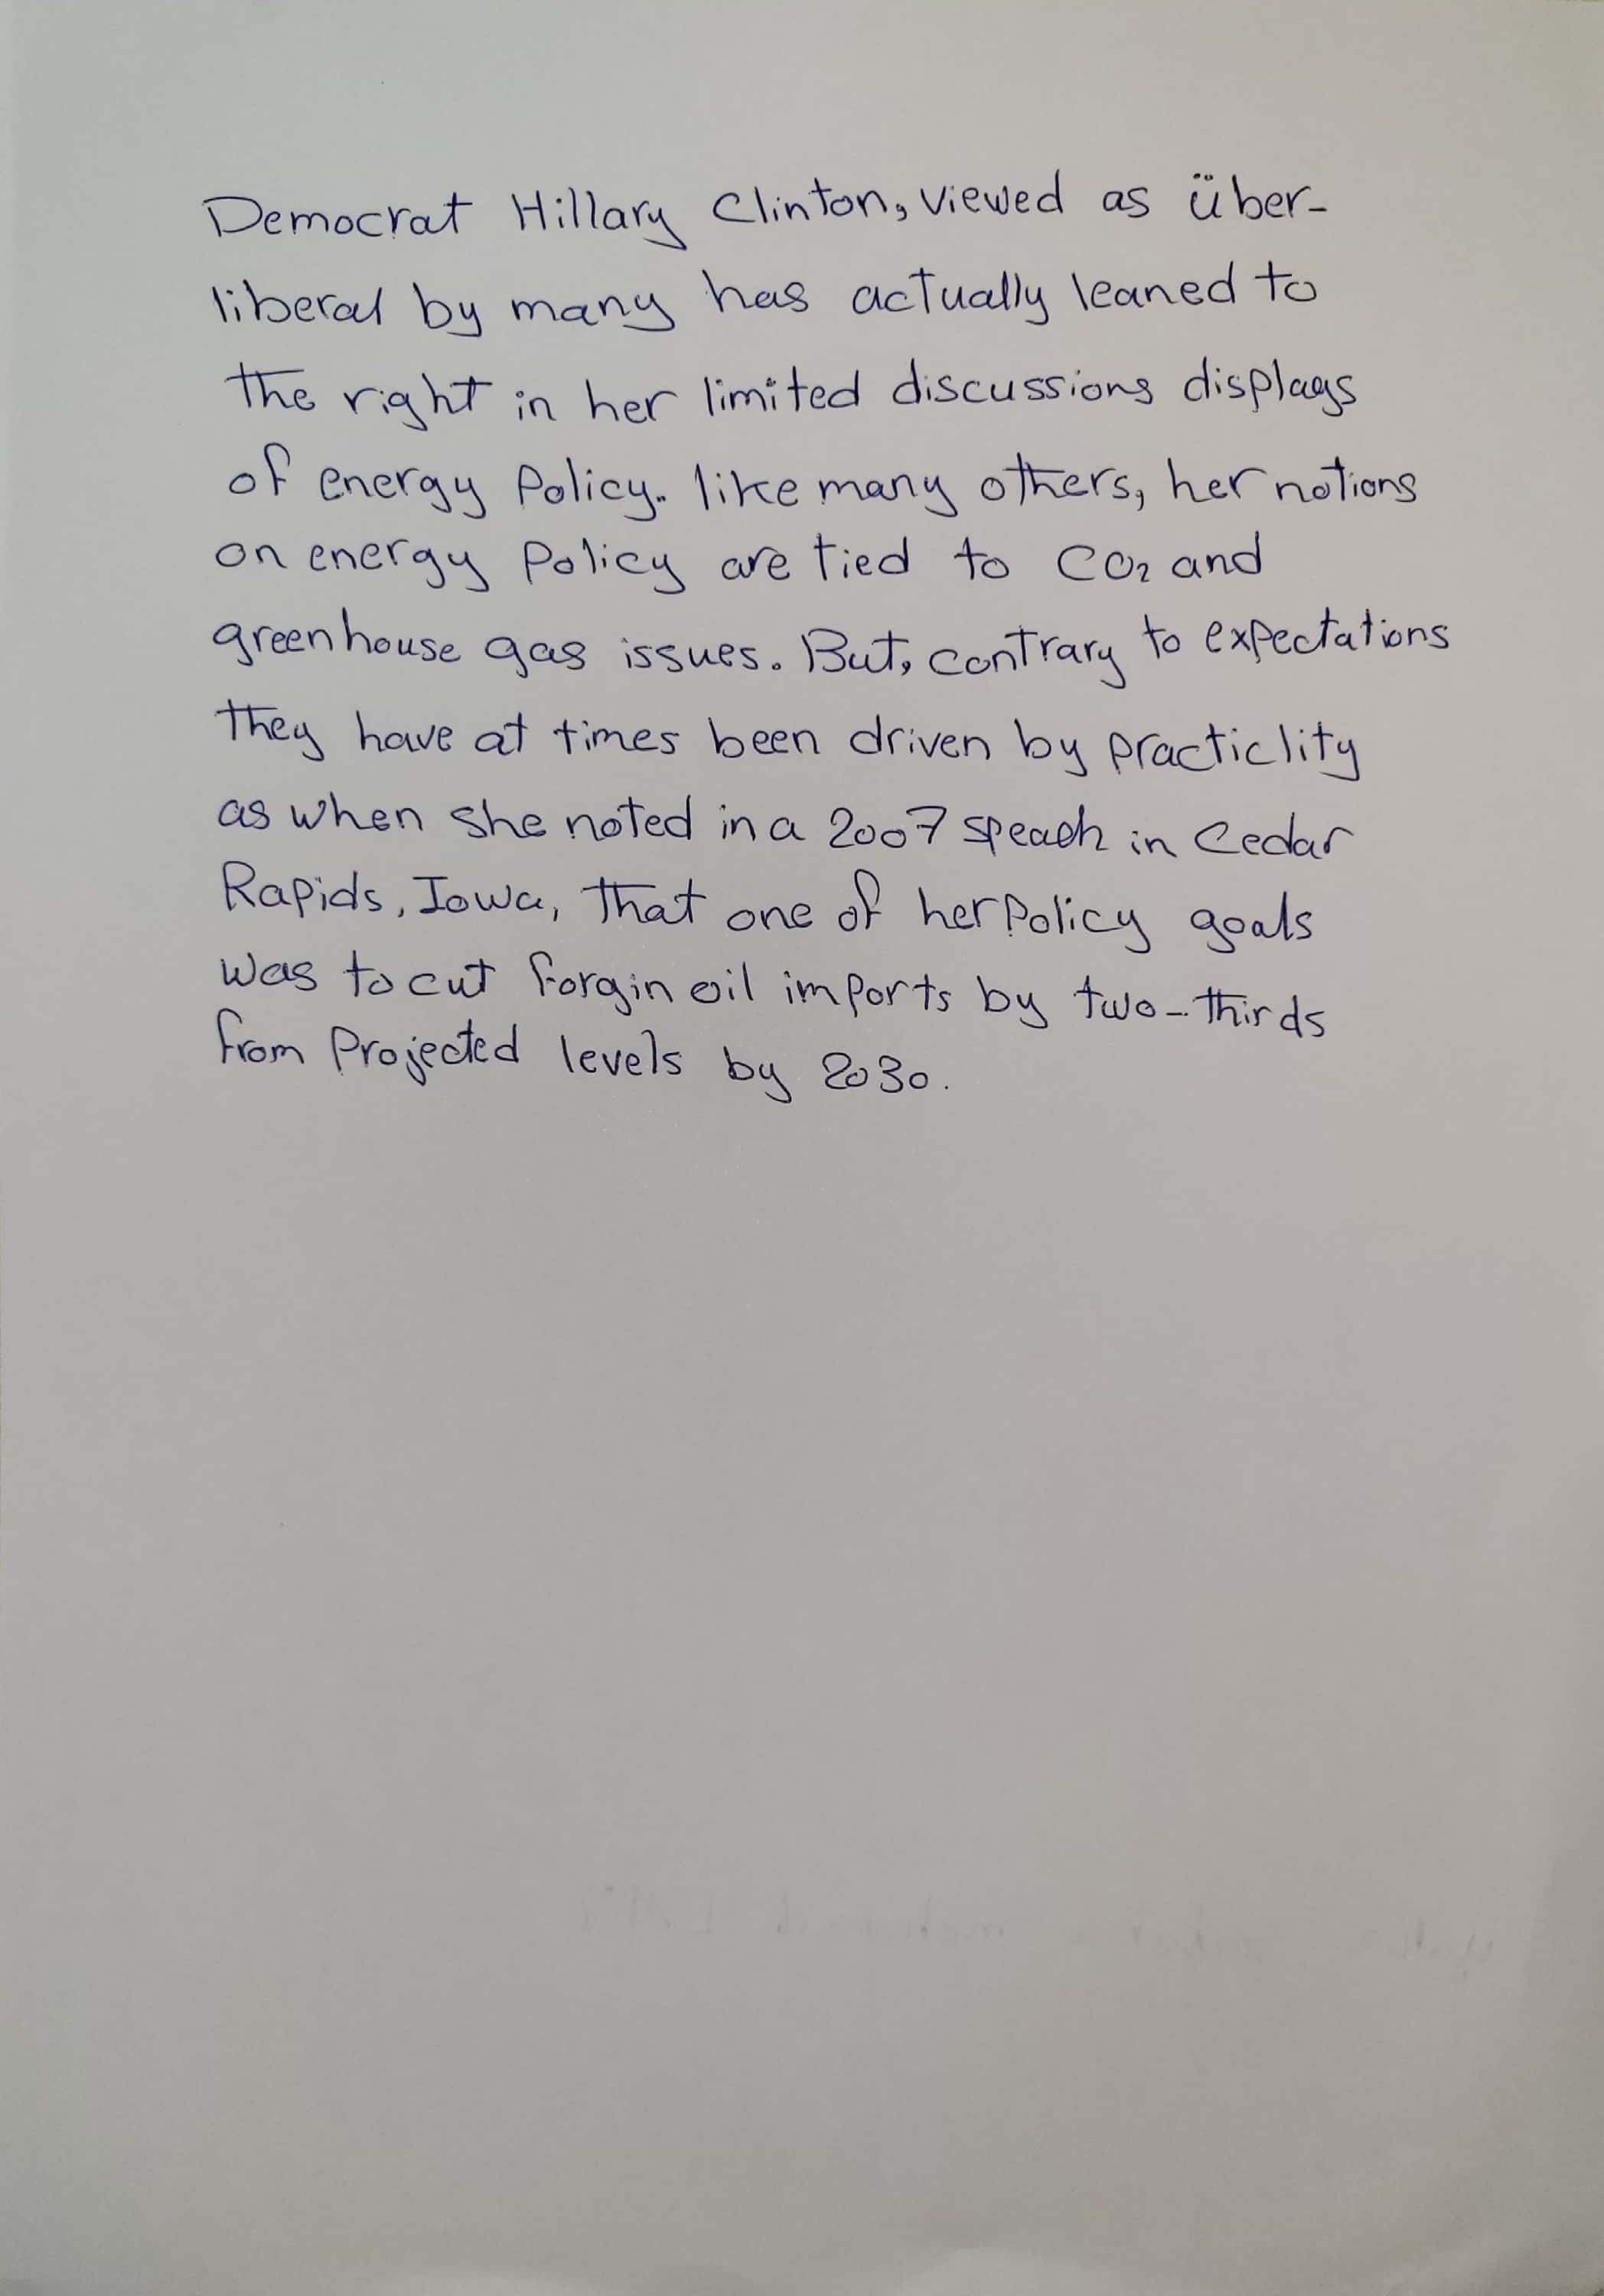 Democrat Hillary Clinton, viewed as über-
liberal by many has actually leaned to
the right in her limited discussions displays
of energy Policy. like many others, her notions
on energy Policy are tied to CO₂ and
greenhouse gas issues. But, contrary to expectations
they have at times been driven by practiclity
as when she noted in a 2007 speach in Cedar
Rapids, Iowa, that one of her Policy goals
was to cut forgin oil imports by two-thirds
from Projected levels by 2030.